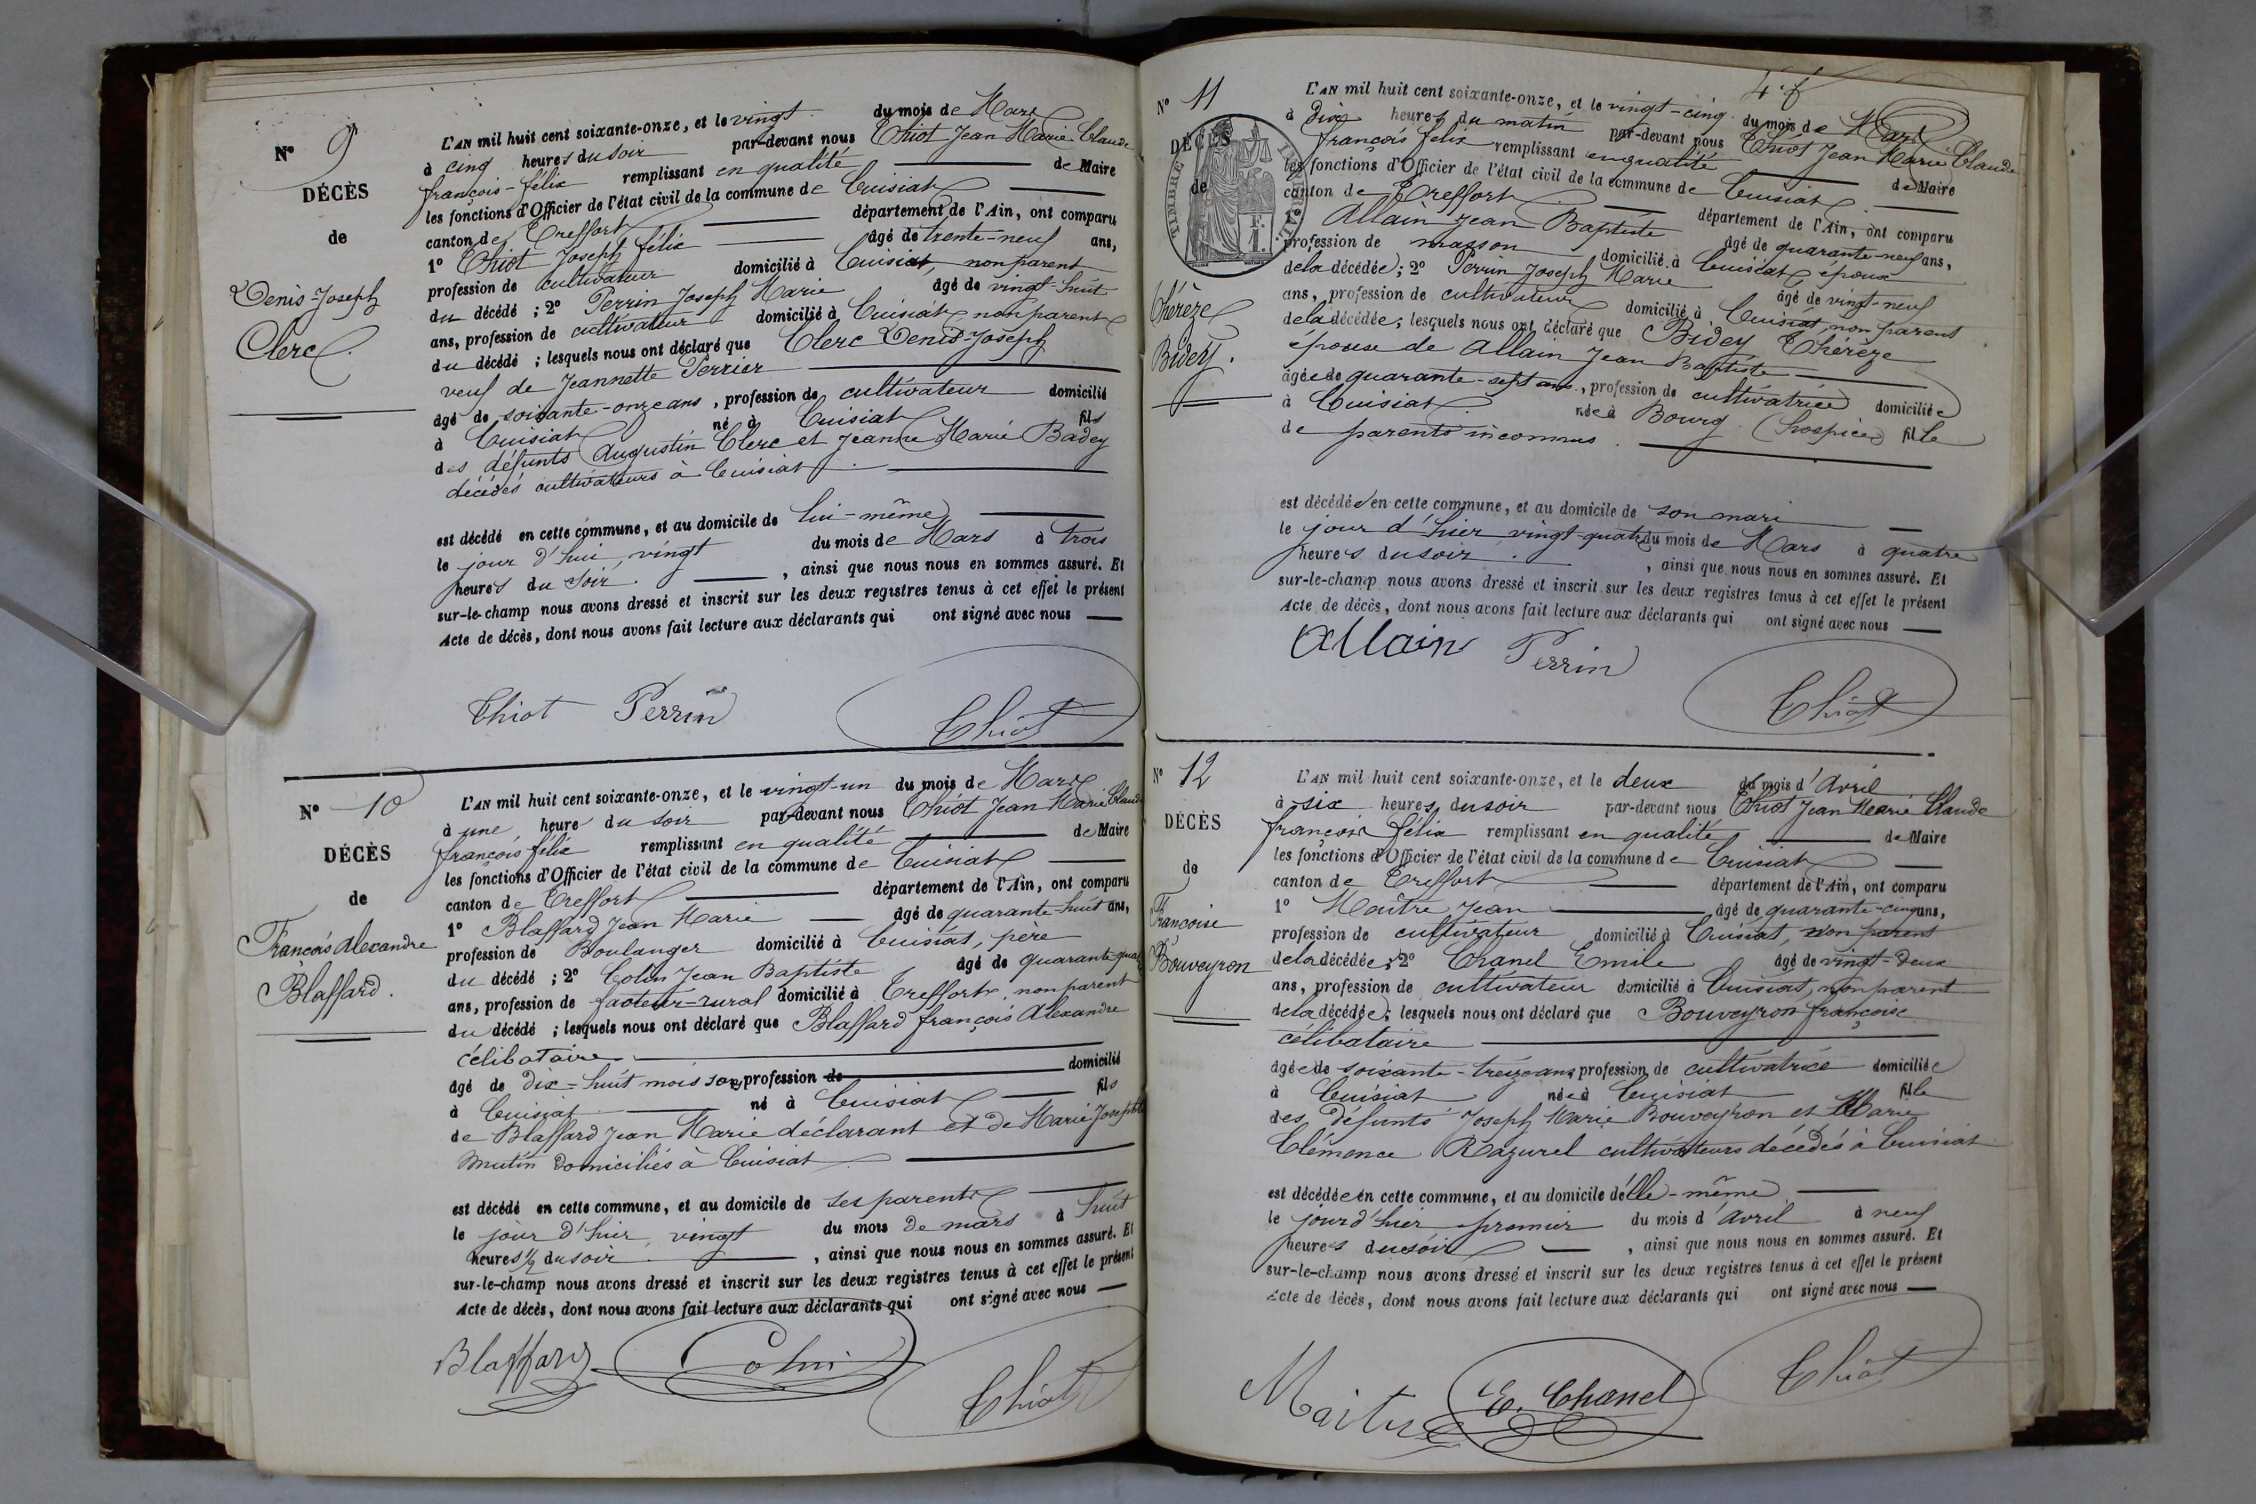 N° 9
DÉCÈS
de
Denis-Joseph
Clerc.
L'AN mil huit cent soixante-onze, et le vingt du mois de Mars
à cinq heures du soir par-devant nous Thiot Jean Marie Claude
françois-félix remplissant en qualité de Maire
les fonctions d'Officier de l'état civil de la commune de Cuisiat
canton de Treffort département de l'Ain, ont comparu
1° Thiot Joseph félix âgé de trente-neuf ans,
profession de cultivateur domicilié à Cuisiat, non parent
du décédé ; 2° Perrin Joseph Marie âgé de vingt-huit
ans, profession de cultivateur domicilié à Cuisiat, non parent
du décédé ; lesquels nous ont déclaré que Clerc Denis-Joseph
veuf de Jeannette Perrier
âgé de soixante-onze ans, profession de cultivateur domicilié
à Cuisiat né à Cuisiat fils
des défunts Augustin Clerc et Jeanne Marie Badey
décédés cultivateurs à Cuisiat.
est décédé en cette commune, et au domicile de lui-même
le jour d'hui vingt du mois de Mars à trois
heures du soir. , ainsi que nous nous en sommes assuré. Et
sur-le-champ nous avons dressé et inscrit sur les deux registres tenus à cet effet le présent
Acte de décès, dont nous avons fait lecture aux déclarants qui ont signé avec nous
Thiot Perrin Thiot
N° 10
DÉCÈS
de
François Alexandre
Blaffard.
L'AN mil huit cent soixante-onze, et le vingt-un du mois de Mars
à une heure du soir par-devant nous Thiot Jean Marie Claude
françois félix remplissant en qualité de Maire
les fonctions d'Officier de l'état civil de la commune de Cuisiat
canton de Treffort département de l'Ain, ont comparu
1° Blaffard Jean Marie âgé de quarante-huit ans,
profession de Boulanger domicilié à Cuisiat, père
du décédé ; 2° Colin Jean Baptiste âgé de quarante quatre
ans, profession de facteur-rural domicilié à Treffort, non parent
du décédé ; lesquels nous ont déclaré que Blaffard françois Alexandre
célibataire
âgé de dix-huit mois profession de domicilié
à Cuisiat né à Cuisiat fils
de Blaffard Jean Marie déclarant et de Marie Josephte
Mutin domiciliés à Cuisiat.
est décédé en cette commune, et au domicile de ses parents
le jour d'hier vingt du mois de mars à huit
heures ½ du soir. , ainsi que nous nous en sommes assuré. Et
sur-le-champ nous avons dressé et inscrit sur les deux registres tenus à cet effet le présent
Acte de décès, dont nous avons fait lecture aux déclarants qui ont signé avec nous
Blaffard Colin Thiot
N° 11
DÉCÈS
de
TIMBRE IMPERIAL
Thérèze
Bidey.
L'AN mil huit cent soixante-onze, et le vingt-cinq du mois de Mars
à Dix heures du matin par-devant nous Thiot Jean Marie Claude
françois félix remplissant en qualité de Maire
les fonctions d'Officier de l'état civil de la commune de Cuisiat
canton de Treffort département de l'Ain, ont comparu
1° Allain Jean Baptiste âgé de quarante-neuf ans,
profession de masson domicilié à Cuisiat, époux
de la décédée ; 2° Perrin Joseph Marie âgé de vingt-neuf
ans, profession de cultivateur domicilié à Cuisiat, non parent
de la décédée ; lesquels nous ont déclaré que Bidey Thérèze
épouse de Allain Jean Baptiste
âgée de quarante-sept ans, profession de cultivatrice domiciliée
à Cuisiat. née à Bourg (hospice) fille
de parents inconnus.
est décédée en cette commune, et au domicile de son mari
le jour d'hier vingt-quatre du mois de Mars à quatre
heures du soir. , ainsi que nous nous en sommes assuré. Et
sur-le-champ nous avons dressé et inscrit sur les deux registres tenus à cet effet le présent
Acte de décès, dont nous avons fait lecture aux déclarants qui ont signé avec nous
Allain Perrin Thiot
N° 12
DÉCÈS
de
Françoise
Bouveyron
L'AN mil huit cent soixante-onze, et le deux du mois d'Avril
à six heures du soir par-devant nous Thiot Jean Marie Claude
françois félix remplissant en qualité de Maire
les fonctions d'Officier de l'état civil de la commune de Cuisiat
canton de Treffort département de l'Ain, ont comparu
1° Maître Jean âgé de quarante-cinq ans,
profession de cultivateur domicilié à Cuisiat, non parent
de la décédée ; 2° Chanel Emile âgé de vingt-deux
ans, profession de cultivateur domicilié à Cuisiat, non parent
de la décédée ; lesquels nous ont déclaré que Bouveyron françoise
célibataire
âgée de soixante-treize ans profession de cultivatrice domiciliée
à Cuisiat née à Cuisiat fille
des défunts Joseph Marie Bouveyron et Marie
Clémence Razurel cultivateurs décédés à Cuisiat
est décédée en cette commune, et au domicile d'elle-même
le jour d'hier premier du mois d'Avril à neuf
heures du soir , ainsi que nous nous en sommes assuré. Et
sur-le-champ nous avons dressé et inscrit sur les deux registres tenus à cet effet le présent
Acte de décès, dont nous avons fait lecture aux déclarants qui ont signé avec nous
Maitre E. Chanel Thiot